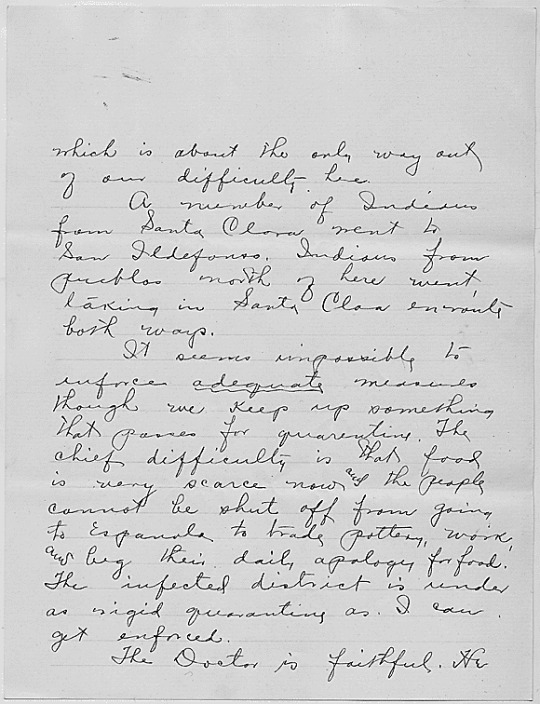 which is about the only way out
of our difficulty here.
A number of Indians
from Santa Clara went to
San Ildefonso. Indians from
pueblos north of here went,
taking in Santa Clara enroute
both ways.
It seems impossible to
inforce adequate measures
though we keep up something
that passes for quarentine. The
chief difficulty is that food
is very scarce now and the people
cannot be shut off from going
to Espanola to trade pottery, work,
and beg their daily apology for food.
The infected district is under
as rigid quarantine as I can
get enforced.
The Doctor is faithful. He